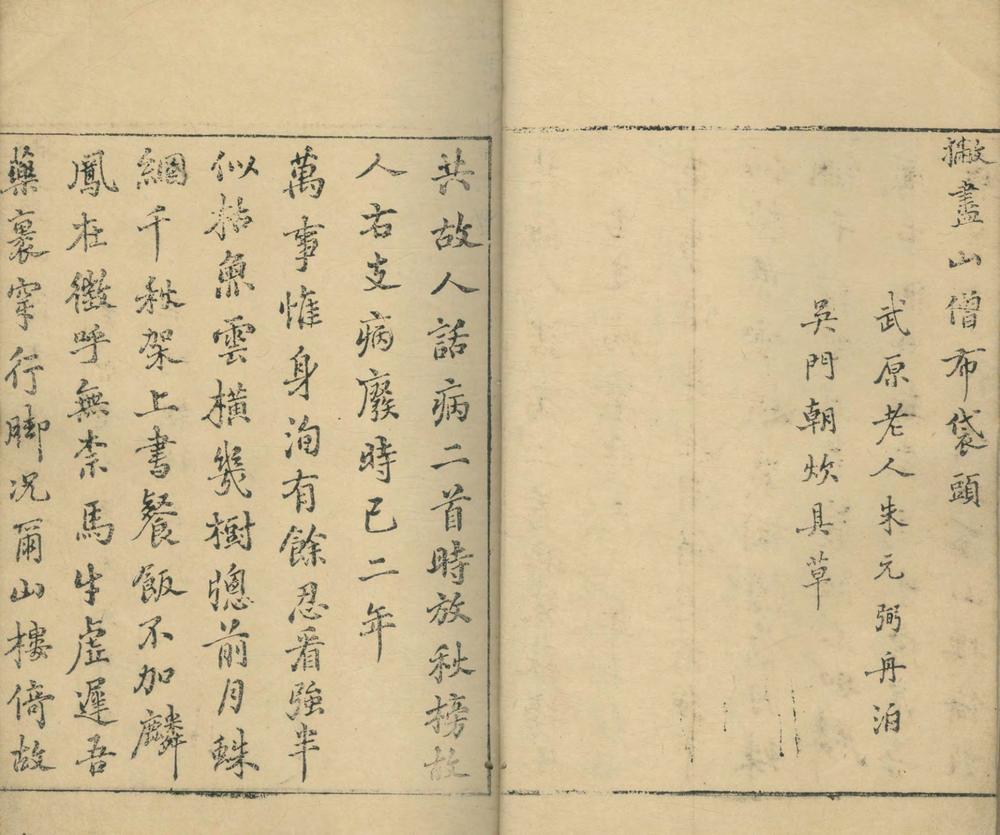 撒盡山僧布袋頭
武原老人朱元弼舟泊
吳門朝炊具草
共故人話病二首時放秋榜故
人右支病廢時已二年
萬事惟身洵有餘忍看強半
似枯魚雲橫幾樹牕前月蛛
網千秋架上書餐飯不加麟
鳳在徵呼無柰馬牛虛遲吾
藥裹穿行脚況爾山樓倚故